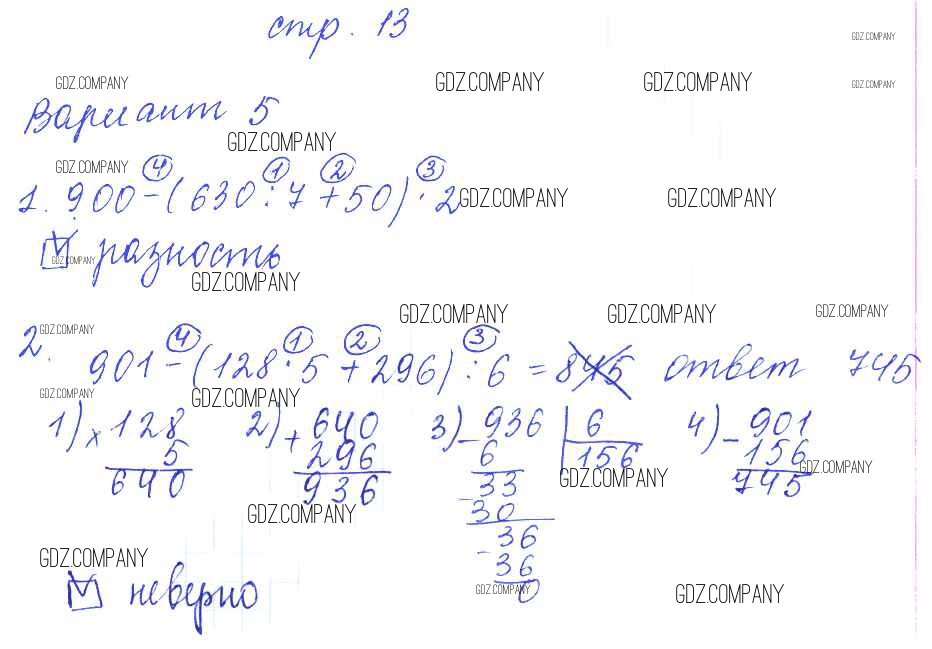 стр. 13
GDZ.COMPANY
GDZ.COMPANY GDZ.COMPANY GDZ.COMPANY GDZ.COMPANY
Вариант 5
GDZ.COMPANY
GDZ.COMPANY 4 1 2 3
1. 900 - (630 : 7 + 50) · 2 GDZ.COMPANY GDZ.COMPANY
GDZ.COMPANY разность
GDZ.COMPANY
GDZ.COMPANY GDZ.COMPANY GDZ.COMPANY
2. GDZ.COMPANY 4 1 2 3
901 - (128 · 5 + 296) : 6 = 845 ответ 745
GDZ.COMPANY GDZ.COMPANY
1) × 128 2) + 640 3) - 936 | 6 4) - 901
5 296 6 156 156
640 936 33 745
GDZ.COMPANY GDZ.COMPANY
- 30
GDZ.COMPANY
36
GDZ.COMPANY - 36
0
неверно GDZ.COMPANY GDZ.COMPANY